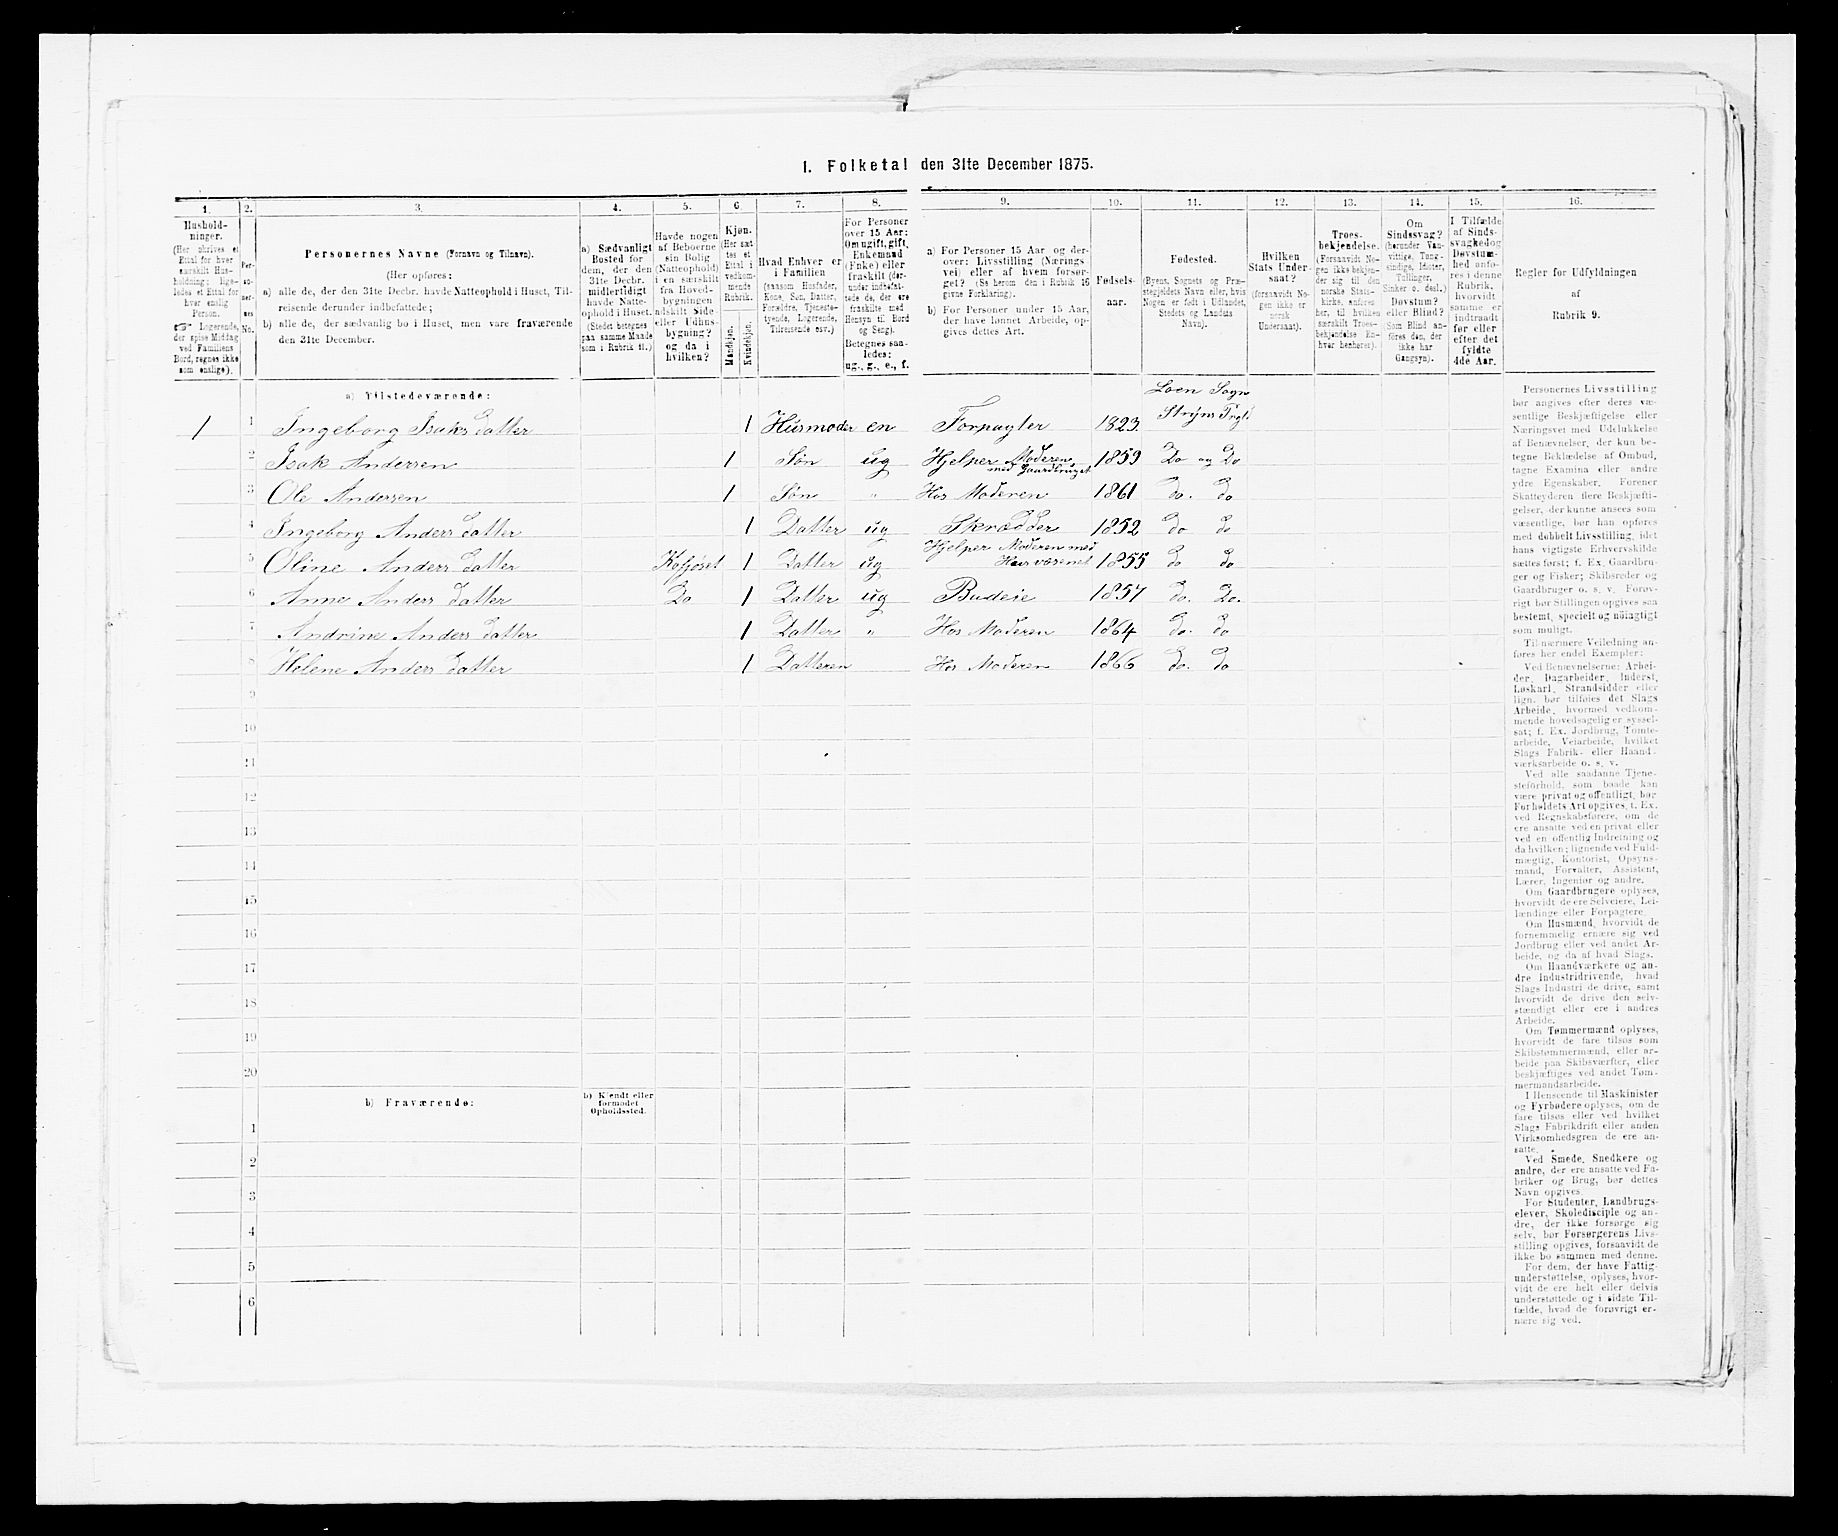 1. Folketal den 31te December 1875.
1. 2. 3. 4. 5. 6. 7. 8. 9. 10. 11. 12. 13. 14. 15. 16.
Hushold-
ninger.
(Her skrives et
Ettal for hver
særskilt Hus-
holdning; lige-
ledes et Ettal for
hver enslig
Person.
☞ Logerende,
der spise Middag
ved Familiens
Bord, regnes ikke
som enslige).
Per-
so-
ner-
nes
No.
Personernes Navne (Fornavn og Tilnavn).
(Her opføres:
a) alle de, der den 31te Decbr. havde Natteophold i Huset, Til-
reisende derunder indbefattede;
b) alle de, der sædvanlig bo i Huset, men vare fraværende
den 31te December.
a) Sædvanligt
Bosted for
dem, der den
31te Decbr.
midlertidigt
havde Natte-
ophold i Huset.
(Stedet betegnes
paa samme Maade
som i Rubrik 11.)
Havde nogen
af Beboerne
sin Bolig
(Natteophold)
i en særskilt
fra Hoved-
bygningen
adskilt Side-
eller Udhus-
bygning?
og da i
hvilken?
Kjøn.
(Her sæt-
tes et
Ettal i
vedkom-
mende
Rubrik.
Mandkjøn.
Kvindekjøn.
Hvad Enhver er
i Familien
(saasom Husfader,
Kone, Søn, Datter,
Forældre, Tjeneste-
tyende, Logerende,
Tilreisende osv.)
For Personer
over 15 Aar:
Om ugift, gift,
Enkemand
(Enke) eller
fraskilt (der-
under indbefat-
tede de, der ere
fraskilte med
Hensyn til Bord
og Seng).
Betegnes saa-
ledes:
ug., g., e., f.
a) For Personer 15 Aar og der-
over: Livsstilling (Nærings-
vei) eller af hvem forsør-
get? (Se herom den i Rubrik 16
givne Forklaring).
b) For Personer under 15 Aar,
der have lønnet Arbeide, op-
gives dettes Art.
Fødsels-
aar.
Fødested.
(Byens, Sognets og Præ-
stegjeldets Navn eller, hvis
Nogen er født i Udlandet,
Stedets og Landets
Navn).
Hvilken
Stats Under-
saat?
(forsaavidt No-
gen ikke er
norsk
Undersaat).
Troes-
bekjendelse.
(Forsaavidt No-
gen ikke bekjen-
der sig til den
norske Stats-
kirke, anføres
her, til hvilken
særskilt Troes-
bekjendelse En-
hver henhører).
Om
Sindssvag?
(herunder Van-
vittige, Tung-
sindige, Idioter,
Tullinger,
Sinker o. desl.)
Døvstum?
eller Blind?
Som Blind an-
føres den, der
ikke har
Gangsyn).
I Tilfælde
af Sinds-
svaghed og
Døvstum-
hed anfø-
res i denne
Rubrik,
hvorvidt
samme er
indtraadt
før eller
efter det
fyldte
4de Aar.
Regler for Udfyldningen
af
Rubrik 9.
a) Tilstedeværende:
Loen Sogn
1 1 Ingeborg Isaksdatter 1 Husmoder en Forpagter 1823 Stryns Prgt
2 Isak Andersen 1 Søn ug Hjelper Moderen med Gaardbruget 1859 Do og Do
3 Ole Andersen 1 Søn " Hos Moderen 1861 do. do
4 Ingeborg Andersdatter 1 Datter ug Skrædder 1852 do do
5 Oline Andersdatter Kofjøset 1 Datter ug Hjelper Moderen med Husvæsenet 1855 do do
6 Anne Andersdatter Do 1 Datter ug Budeie 1857 do. Do.
7 Andrine Andersdatter 1 Datter " Hos Moderen 1864 do. do
8 Helene Andersdatter 1 Datteren Hos Moderen 1866 do. do
9
10
11
12
13
14
15
16
17
18
19
20
b) Fraværende:
b) Kjendt eller
formodet
Opholdssted.
1
2
3
4
5
6
Personernes Livsstilling
bør angives efter deres væ-
sentlige Beskjæftigelse eller
Næringsvei med Udelukkelse
af Benævnelser, der kun be-
tegne Beklædelse af Ombud,
tagne Examina eller andre
ydre Egenskaber. Forener
Skatteyderen flere Beskjæfti-
gelser, der kunne ansees som
væsentlige, bør han opføres
med dobbelt Livsstilling, idet
hans vigtigste Erhvervskilde
sættes først; f. Ex. Gaardbru-
ger og Fisker; Skibsreder og
Gaardbruger o. s. v. Forøv-
rigt bør Stillingen opgives saa
bestemt, specielt og nøiagtigt
som muligt.
Til nærmere Veiledning an-
føres her endel Exempler:
Ved Benævnelserne: Arbei-
der, Dagarbeider, Inderst,
Løskarl, Strandsidder eller
lign. bør tilføies det Slags
Arbeide, hvormed vedkom-
mende hovedsagelig er syssel-
sat; f. Ex. Jordbrug, Tomte-
arbeide, Veiarbeide, hvilket
Slags Fabrik- eller Haand-
værksarbeide o. s. v.
Ved alle saadanne Tjene-
steforhold, som baade kan
være privat og offentligt, bør
Forholdets Art opgives, t. Ex.
ved Regnskabsførere, om de
ere ansatte ved en privat eller
ved en offentlig Indretning og
da hvilken; lignende ved Fuld-
mægtig, Kontorist, Opsyns-
mand, Forvalter, Assistent,
Lærer, Ingeniør og andre.
Om Gaardbrugere oplyses,
hvorvidt de ere Selveiere, Lei-
lændinge eller Forpagtere.
Om Husmænd, hvorvidt de
fornemmelig ernære sig ved
Jordbrug eller ved andet Ar-
beide, og da af hvad Slags.
Om Haandværkere og an-
dre Industridrivende, hvad
Slags Industri de drive, samt
hvorvidt de drive den selv-
stændigt eller ere i andres
Arbeide.
Om Tømmermænd oplyses,
hvorvidt de fare tilsøs som
Skibstømmermænd, eller ar-
beide paa Skibsværfter, eller
beskjæftiges ved andet Tøm-
mermandsarbeide.
I Henseende til Maskinister
og Fyrbødere oplyses, om de
fare tilsøs eller ved hvilket
Slags Fabrikdrift eller anden
Virksomhedsgren de ere an-
satte.
Ved Smede, Snedkere og
andre, der ere ansatte ved Fa-
briker og Brug, bør dettes
Navn opgives.
For Studenter, Landbrugs-
elever, Skoledisciple og an-
dre, der ikke forsørge sig
selv, bør Forsørgerens Livs-
stilling opgives, forsaavidt de
ikke bo sammen med denne.
For dem, der have Fattig-
understøttelse, oplyses, hvor-
vidt de ere helt eller delvis
understøttede og i sidste Til-
fælde, hvad de forøvrigt er-
nære sig ved.